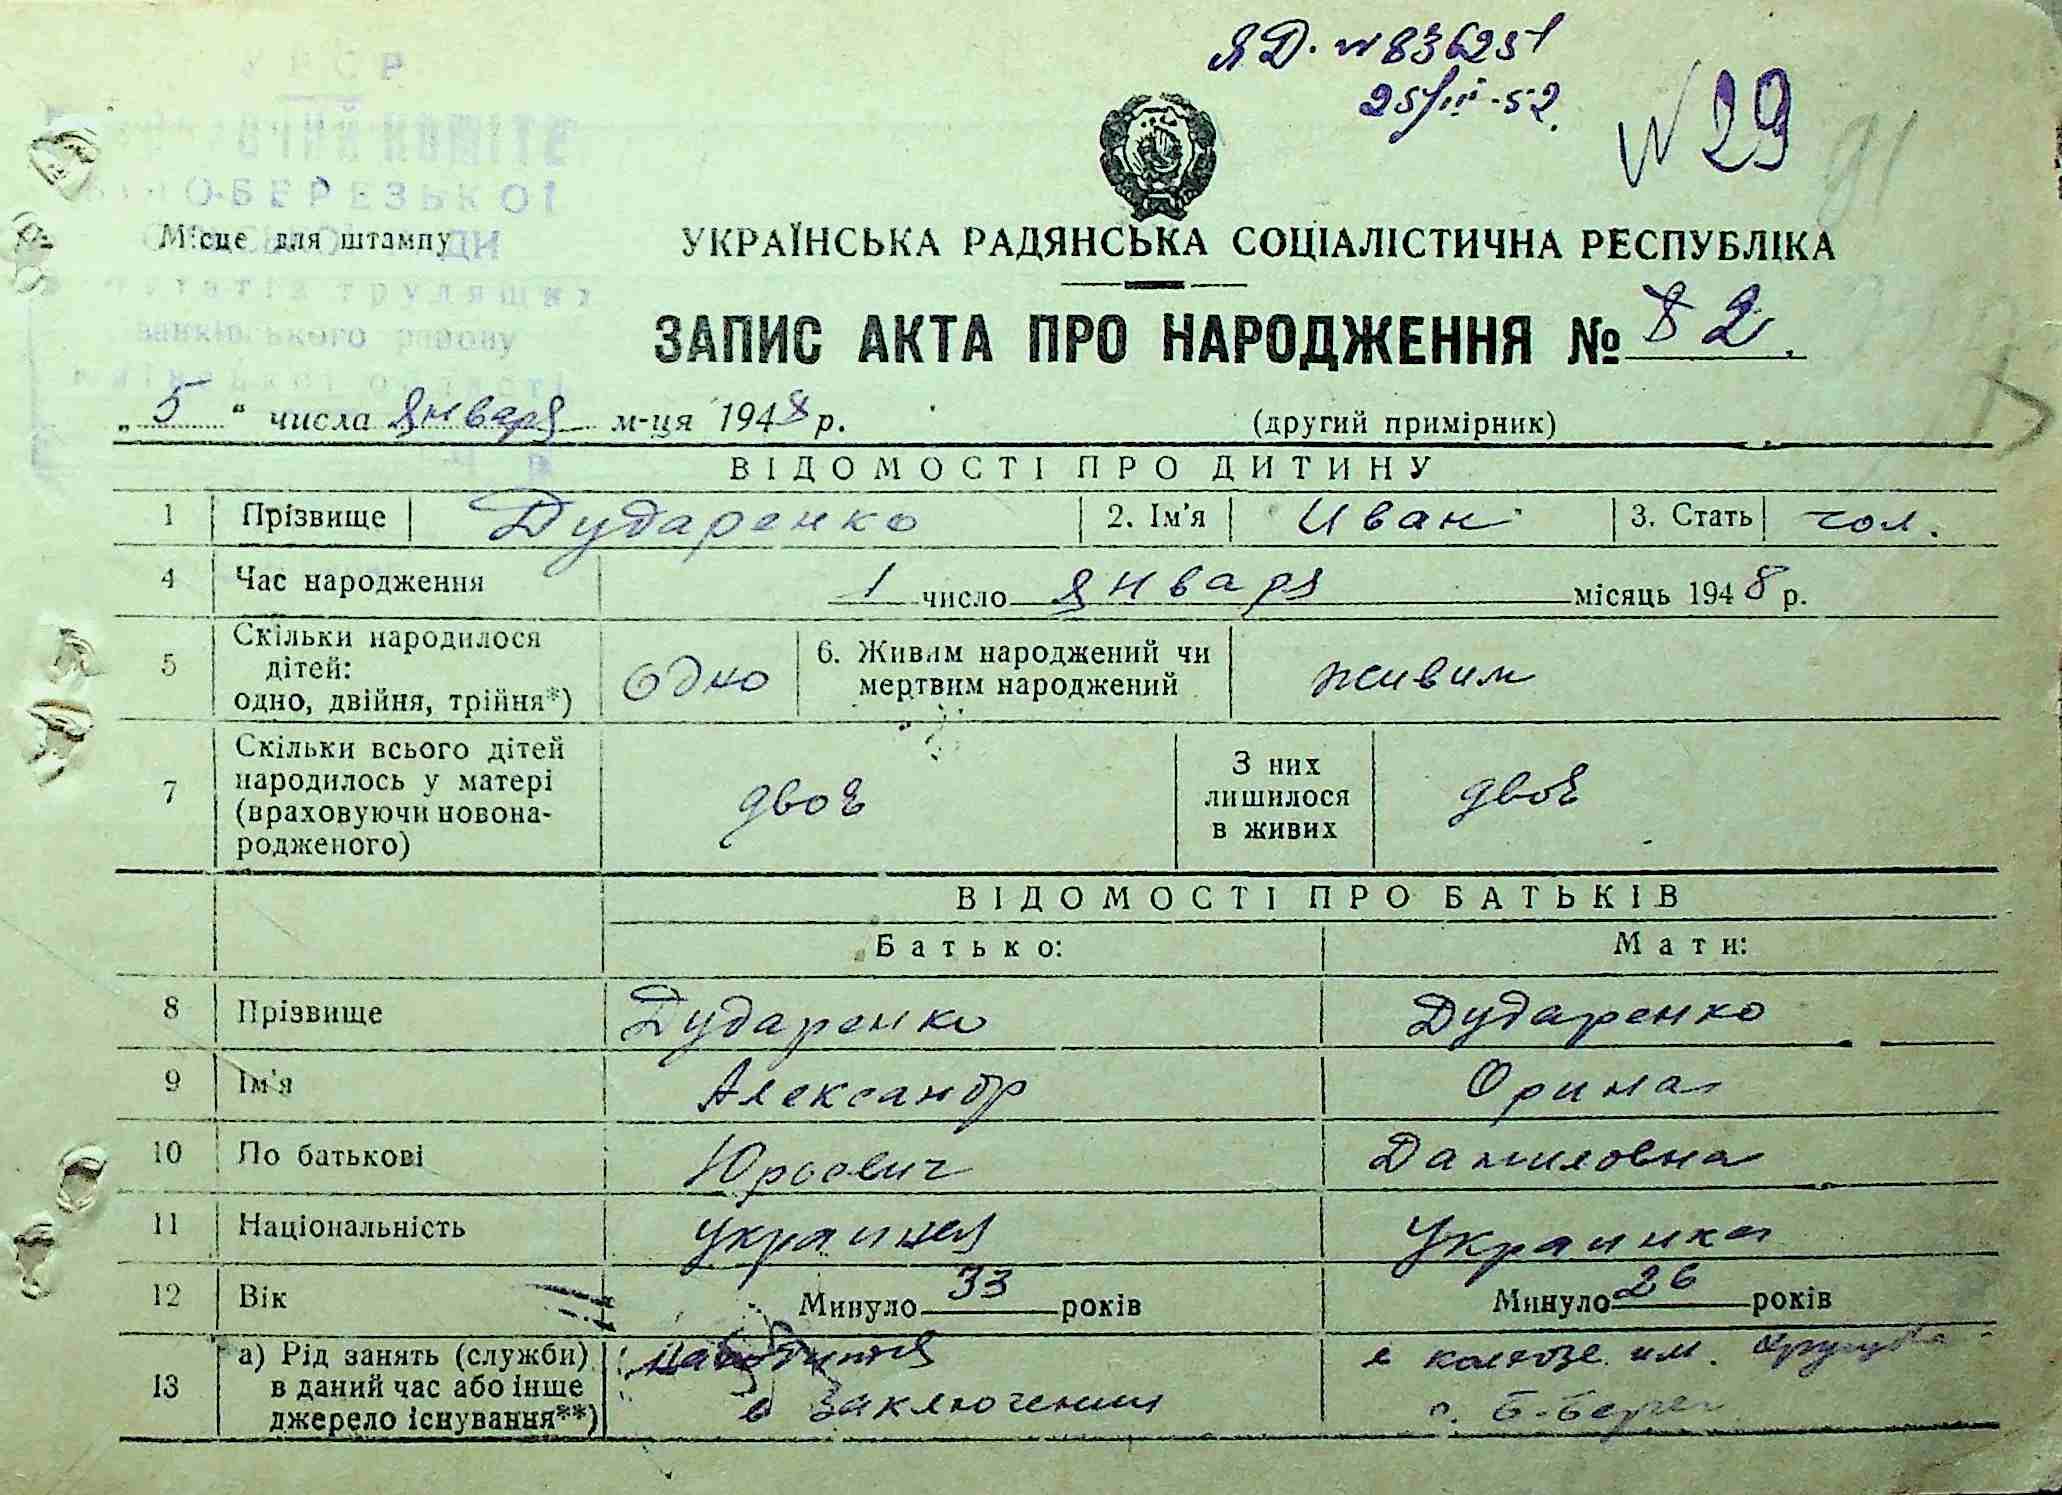 ЯД. № 836251
25/III-52.
N 29
91
УРСР
О-БЕРЕЗЬКОЇ
Місце для штампу
трудящих
району
області
УКРАЇНСЬКА РАДЯНСЬКА СОЦІАЛІСТИЧНА РЕСПУБЛІКА
ЗАПИС АКТА ПРО НАРОДЖЕННЯ № 82.
„5“ числа января м-ця 1948 р. (другий примірник)
ВІДОМОСТІ ПРО ДИТИНУ
1 Прізвище Дударенко 2. Ім'я Иван 3. Стать чол.
4 Час народження 1 число января місяць 1948 р.
5 Скільки народилося дітей: одно, двійня, трійня*) одно 6. Живим народжений чи мертвим народжений живим
7 Скільки всього дітей народилось у матері (враховуючи новонародженого) двоє З них лишилося в живих двоє
ВІДОМОСТІ ПРО БАТЬКІВ
Батько: Мати:
8 Прізвище Дударенко Дударенко
9 Ім'я Александр Орина
10 По батькові Юрович Даниловна
11 Національність украинец Украинка
12 Вік Минуло 33 років Минуло 26 років
13 а) Рід занять (служби) в даний час або інше джерело існування**) находится в заключении в колхозе им. Хрущова с. Б-Берег